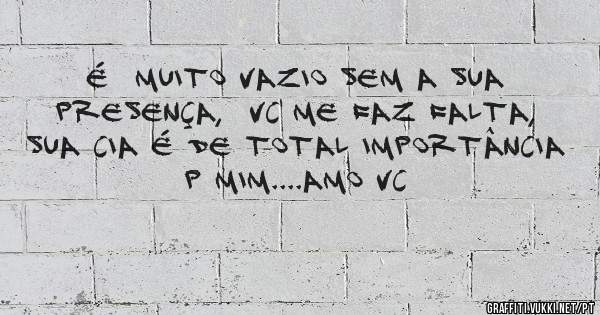 É MUITO VAZIO SEM A SUA
PRESENÇA, VC ME FAZ FALTA,
SUA CIA É DE TOTAL IMPORTÂNCIA
P MIM....AMO VC
GRAFFITI.VUKKI.NET/PT